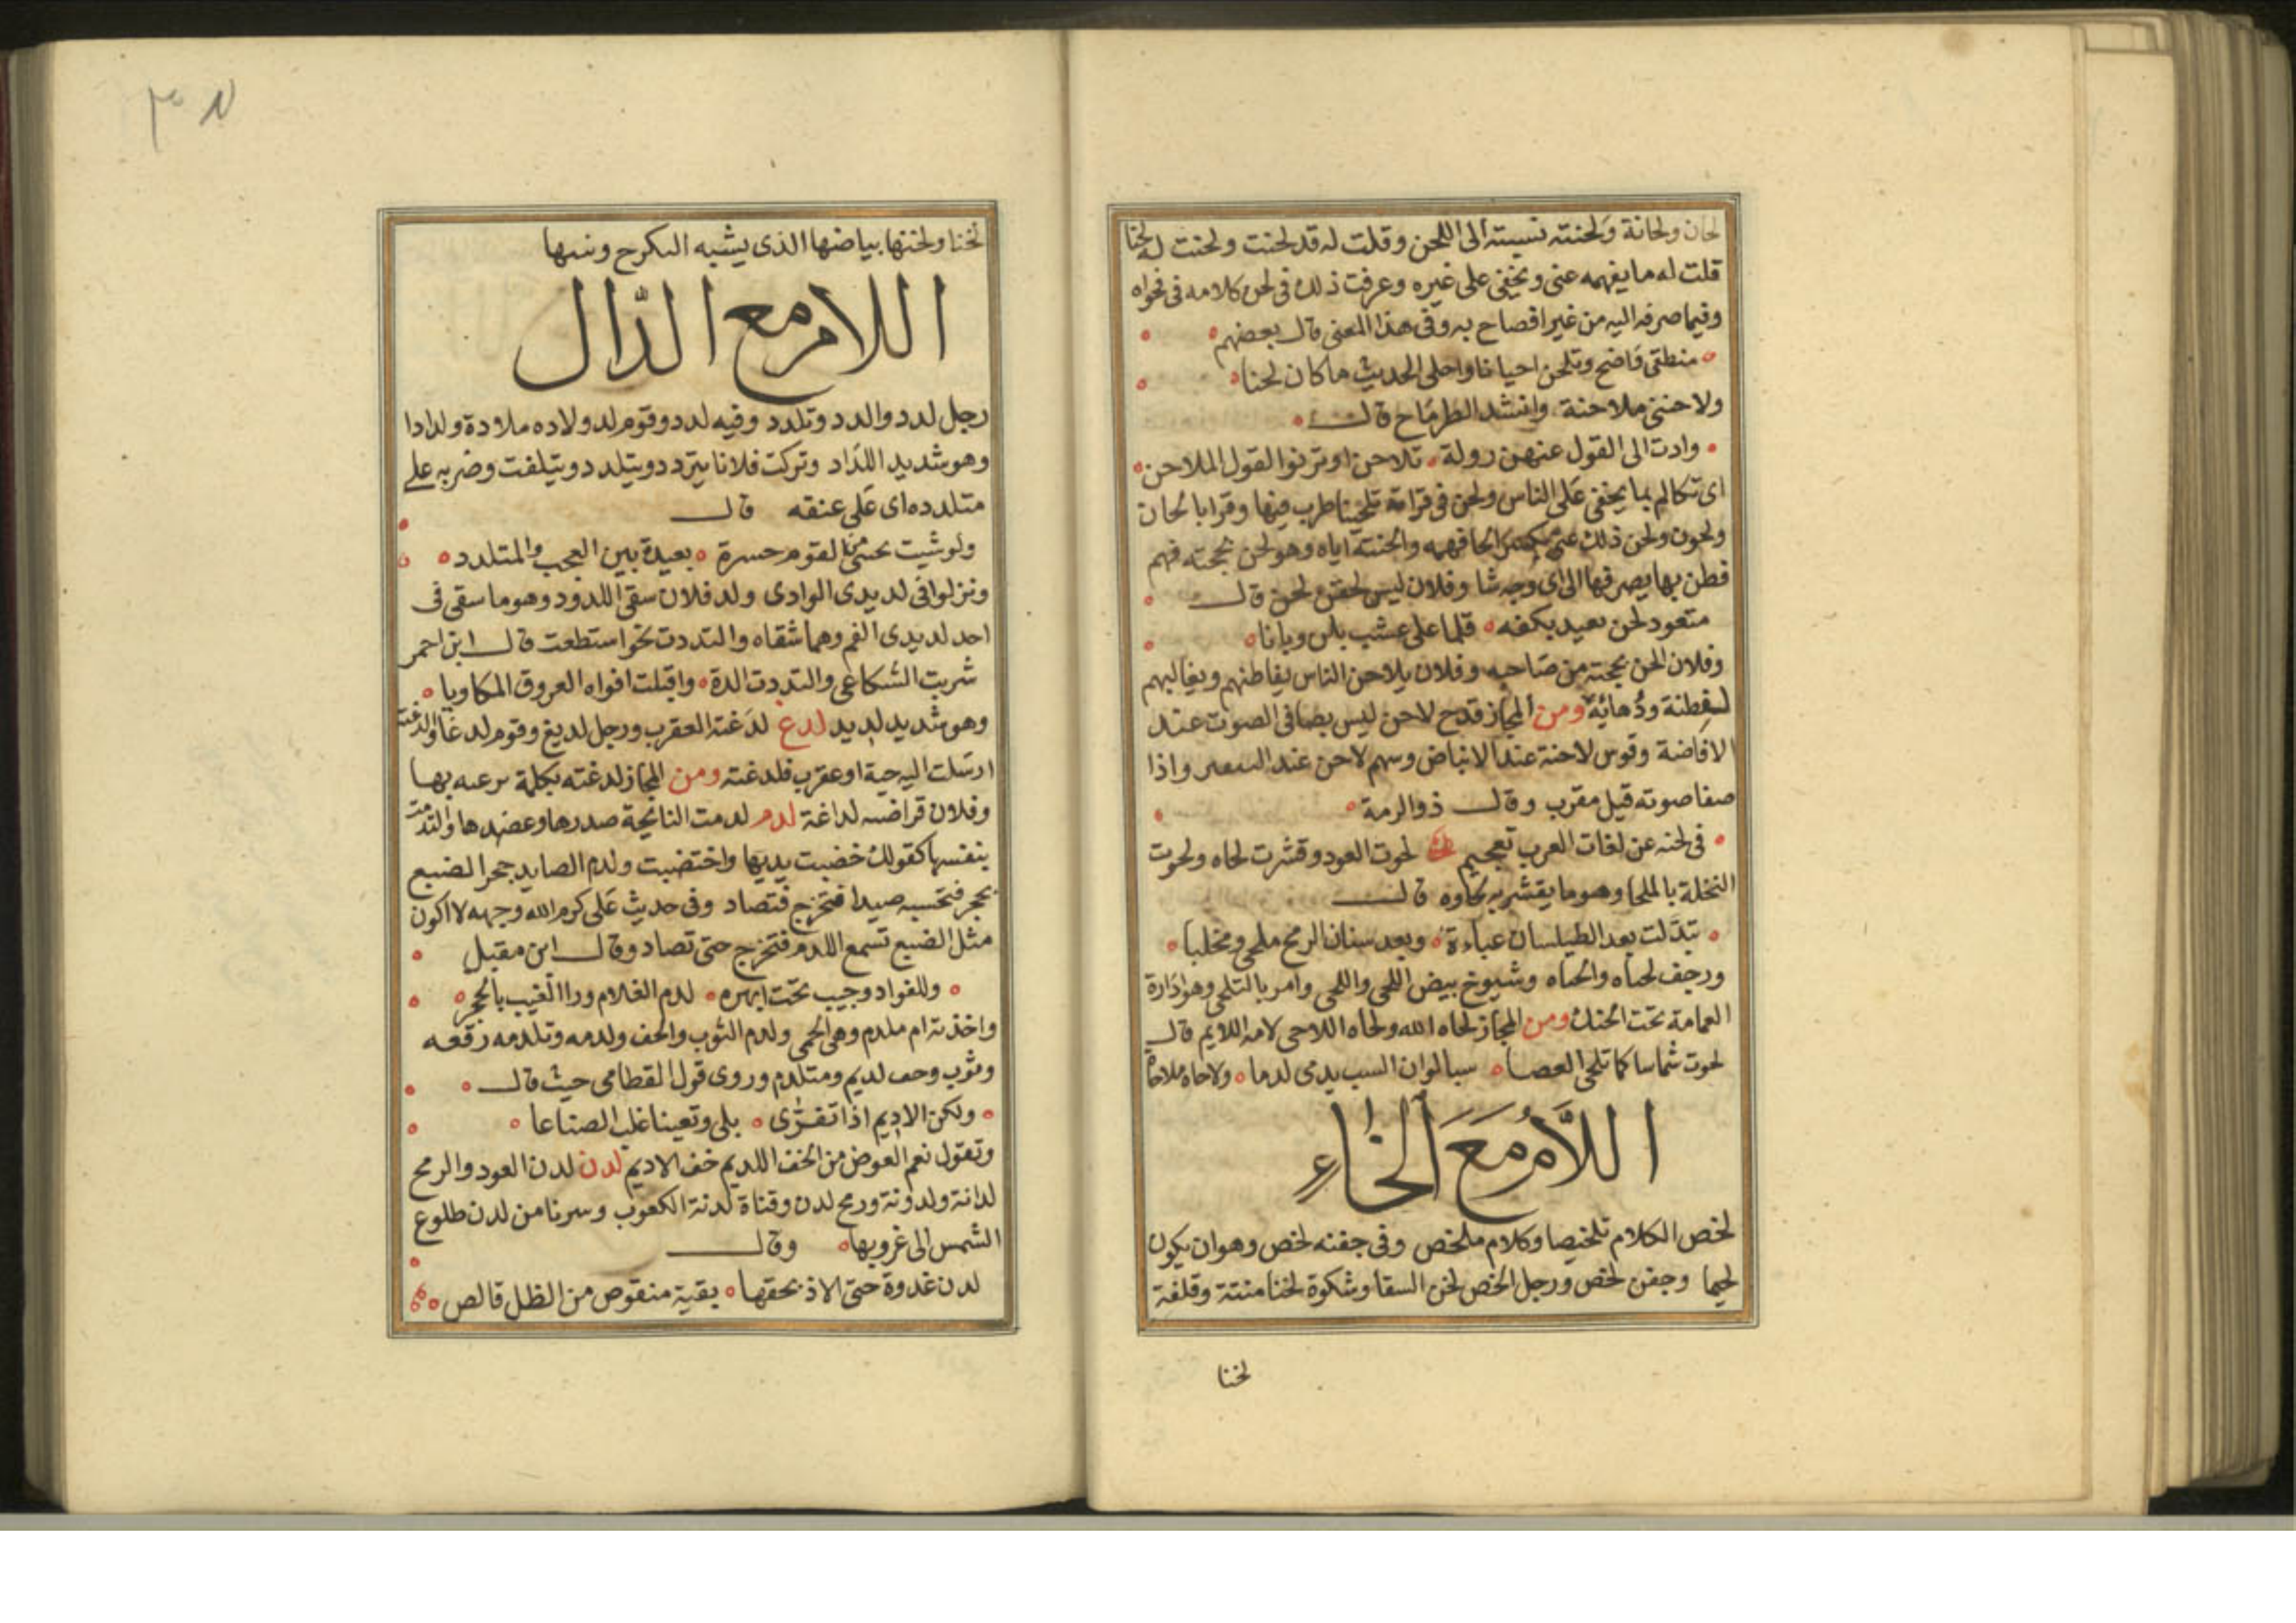 لحان ولحانة ولحنته نسبته الى اللحن وقلت له قد لحنت ولحنت له لحنا
قلت له ما يفهمه عنى ويخفى على غيره وعرفت ذلك فى لحن كلامه فى فحواه
وفيما صرفه اليه من غير افصاح به وفى هذا المعنى قال بعضهم
منطقى واضح وتلحن احيانا واحلى الحديث ما كان لحنا
ولاحننى ملاحنة وانشد الطرماح قال
وادت الى القول عنهن زولة تلاحن او ترنوا القول الملاحن
اى تكالم بما يخفى على الناس ولحن فى قراته تلحينا طرب فيها وقرا بالحان
ولحون ولحن ذلك عنى لحنا فهمه والحنته اياه وهو لحن بحجته فهم
فطن بها يصرفها الى اى وجه شا وفلان ليس لحقن لحن قال
متعود لحن يعيد بكفه قلما على عسب بلن وبانا
وفلان الحن بحجته من صاحبه وفلان يلاحن الناس يفاطنهم ويغالبهم
لفطنة ودهائه ومن المجاز قدح لاحن ليس بصافى الصوت عند
الافاضة وقوس لاحنة عند الانباض وسهم لاحن عند واذا
صفا صوته قيل مقرب وقال ذو الرمة
فى لحنه عن لغات العرب تعجيم لحوت العود وقشرت لحاه ولحوت
النخلة بالملحا وهو ما يقشر به لحاوه قال
تبدلت بعد الطيلسان عباءة وبعد سنان الرمح ملحى ومخلبا
ورجف لحياه والحياه وشيوخ بيض اللحى واللحى وامر بالتلحى وهو ادارة
العمامة تحت الحنك ومن المجاز لحاه الله ولحاه اللاحى لامه اللايم قال
لحوت شماسا كما تلحى العصا سبا لو ان السب يدمى لدما ولاحاه ملاحاة
اللام مع الخاء
لخص الكلام تلخيصا وكلام ملخص وفى جفنه لخص وهو ان يكون
لحيما وجفن لخص ورجل الخص لخن السقا وشكوة لخنا منتنة وقلفة
لخنا
لخنا ولخنها بياضها الذى يشبه
اللام مع الدال
رجل لدد والدد وتلدد وفيه لدد وقوم لد ولاده ملادة ولدادا
وهو شديد اللداد وتركت فلانا يتردد ويتلدد ويتلفت وضربه على
متلدده اى على عنقه قال
ولو شيت القوم حسرة بعيدة بين العجب والمتلدد
ونزلوا فى لديدى الوادى ولد فلان سقى اللدود وهو ما سقى فى
احد لديدى الفم وهما شقاه والتددت نحو استطعت قال ابن احمر
شربت الشكاعى والتددت الدة واقبلت افواه العروق المكاويا
وهو شديد لديد لدغ لدغته العقرب ورجل لديغ وقوم لدغا والدغته
ارسلت اليه حية او عقرب فلدغته ومن المجاز لدغته بكلمة بها
وفلان قراضه لداغة لدم لدمت النائحة صدرها وعضدها والتدمت
بنفسها كقولك خضبت يديها واختضبت ولدم الصايد جحر الضبع
بحجر فتحسبه صيدا فتخرج فتصاد وفى حديث على كرم الله وجهه لا اكون
مثل الضبع تسمع اللدم فتخرج حتى تصاد وقال ابن مقبل
وللفواد وجيب تحت ابهره لدم الغلام ورا الغيب بالحجر
واخذته ام ملدم وهى الحمى ولدم الثوب والخف ولدمه وتلدمه رقعه
وثوب وخف لديم ومتلدم وروى قول القطامى حيث قال
ولكن الاديم اذا تفرى بلى وتعينا غلب الصناعا
وتقول نعم العوض من الخف اللديم خف الاديم لدن لدن العود والرمح
لدانة ولدونة ورمح لدن وقناة لدنة الكعوب وسرنا من لدن طلوع
الشمس الى غروبها وقال
لدن غدوة حتى الاذ بحقها بقية منقوص من الظل قالص